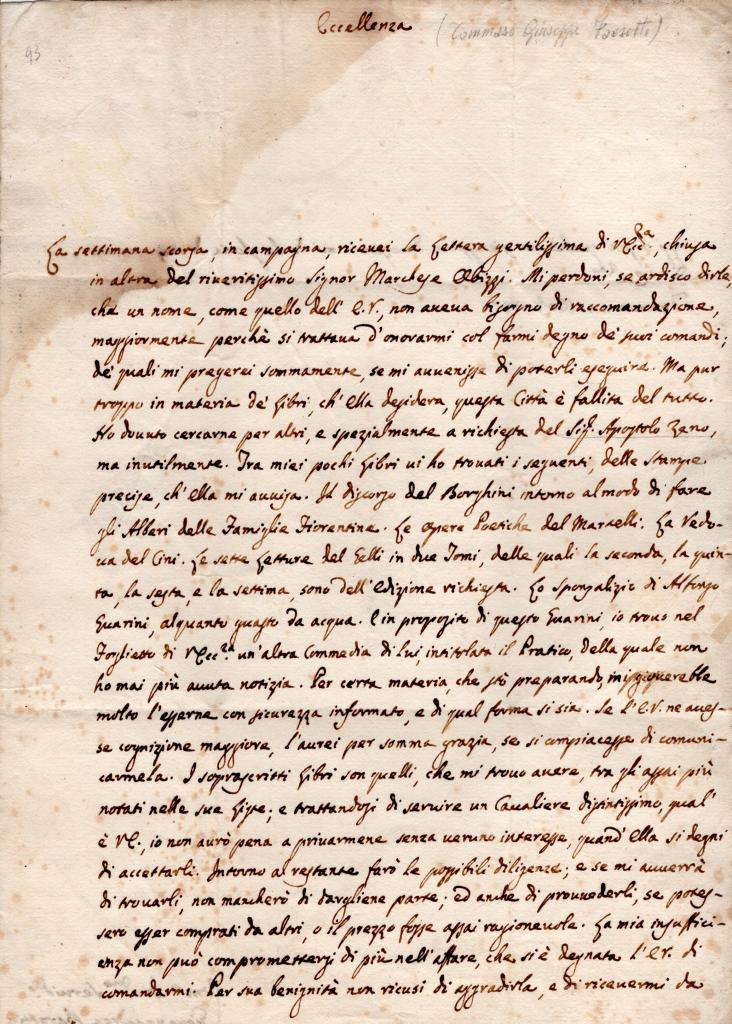 Eccellenza (Tommaso Giuseppe Farsetti)
93
La settimana scorsa, in campagna, ricevei la Lettera gentilissima di VEcc.za, chiusa
in altra del riveritissimo Signor Marchese Obizzi. Mi perdoni, se ardisco dirle,
che un nome, come quello dell' E.V., non aveva bisogno di raccomandazione,
maggiormente perchè si trattava d'onorarmi col farmi degno de' suoi comandi;
de' quali mi pregerei sommamente, se mi avvenisse di poterli eseguire. Ma pur
troppo in materia de' Libri, ch' Ella desidera, questa Città è fallita del tutto.
Ho dovuto cercarne per altri, e spezialmente a richiesta del Sig.r Apostolo Zeno,
ma inutilmente. Tra miei pochi Libri vi ho trovati i seguenti, delle stampe
precise, ch' ella mi avvisa. Il discorso del Borghini intorno al modo di fare
gli Alberi delle Famiglie Fiorentine. Le Opere Poetiche del Martelli. La Vedo-
va del Cini. Le sette Letture del Gelli in due Tomi, delle quali la seconda, la quin-
ta, la sesta, e la settima, sono dell' edizione richiesta. Lo Sponsalizio di Alfonso
Guarini, alquanto guasto da acqua. E in proposito di questo Guarini, io trovo nel
Foglietto di VEcc.za un' altra Commedia di lui, intitolata il Pratico, della quale non
ho mai più avuta notizia. Per certa materia, che stò preparando, mi gioverebbe
molto l'esserne con sicurezza informato, e di qual forma si sia. Se l' E.V. ne aves-
se cognizione maggiore, l'avrei per somma grazia, se si compiacesse di comuni-
carmela. I soprascritti Libri son quelli, che mi trovo avere, tra gli assai più
notati nelle sue Liste; e trattandosi di servire un Cavaliere distintissimo, qual'
è VE., io non avrò pena a privarmene senza veruno interesse, quand' Ella si degni
di accettarli. Intorno al restante farò le possibili diligenze; e se mi avverrà
di trovarli, non mancherò di dargliene parte; ed anche di provvederli, se potes-
sero esser comprati da altri, o il prezzo fosse assai ragionevole. La mia insuffici-
enza non può compromettersi di più nell' affare, che si è degnata l' E.V. di
comandarmi. Per sua benignità non ricusi di aggradirla, e di ricevermi da